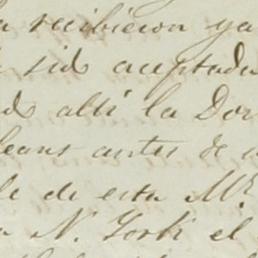 recibieron ya
sid aceptada
alli la Dor
leans antes de
de esta Mr.
N. York el